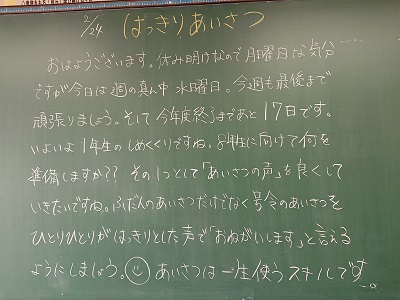 2/24 はっきりあいさつ
おはようございます。休み明けなので月曜日な気分
ですが今日は週の真ん中 水曜日。今週も最後まで
頑張りましょう。そして今年度終了まであと17日です。
いよいよ1年生のしめくくりですね。2年生に向けて何を
準備しますか?? その1つとして「あいさつの声」を良くして
いきたいですね。ふだんのあいさつだけでなく号令のあいさつを
ひとりひとりがはっきりとした声で「おねがいします」と言える
ようにしましょう。あいさつは一生使うスキルです